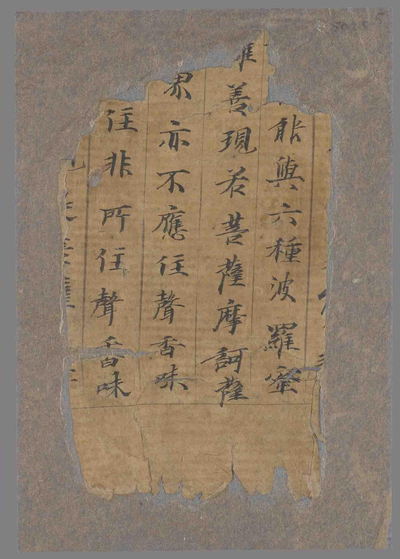 能與六種波羅蜜
善現若菩薩摩訶薩
界亦不應住聲香味
住非所住聲香味